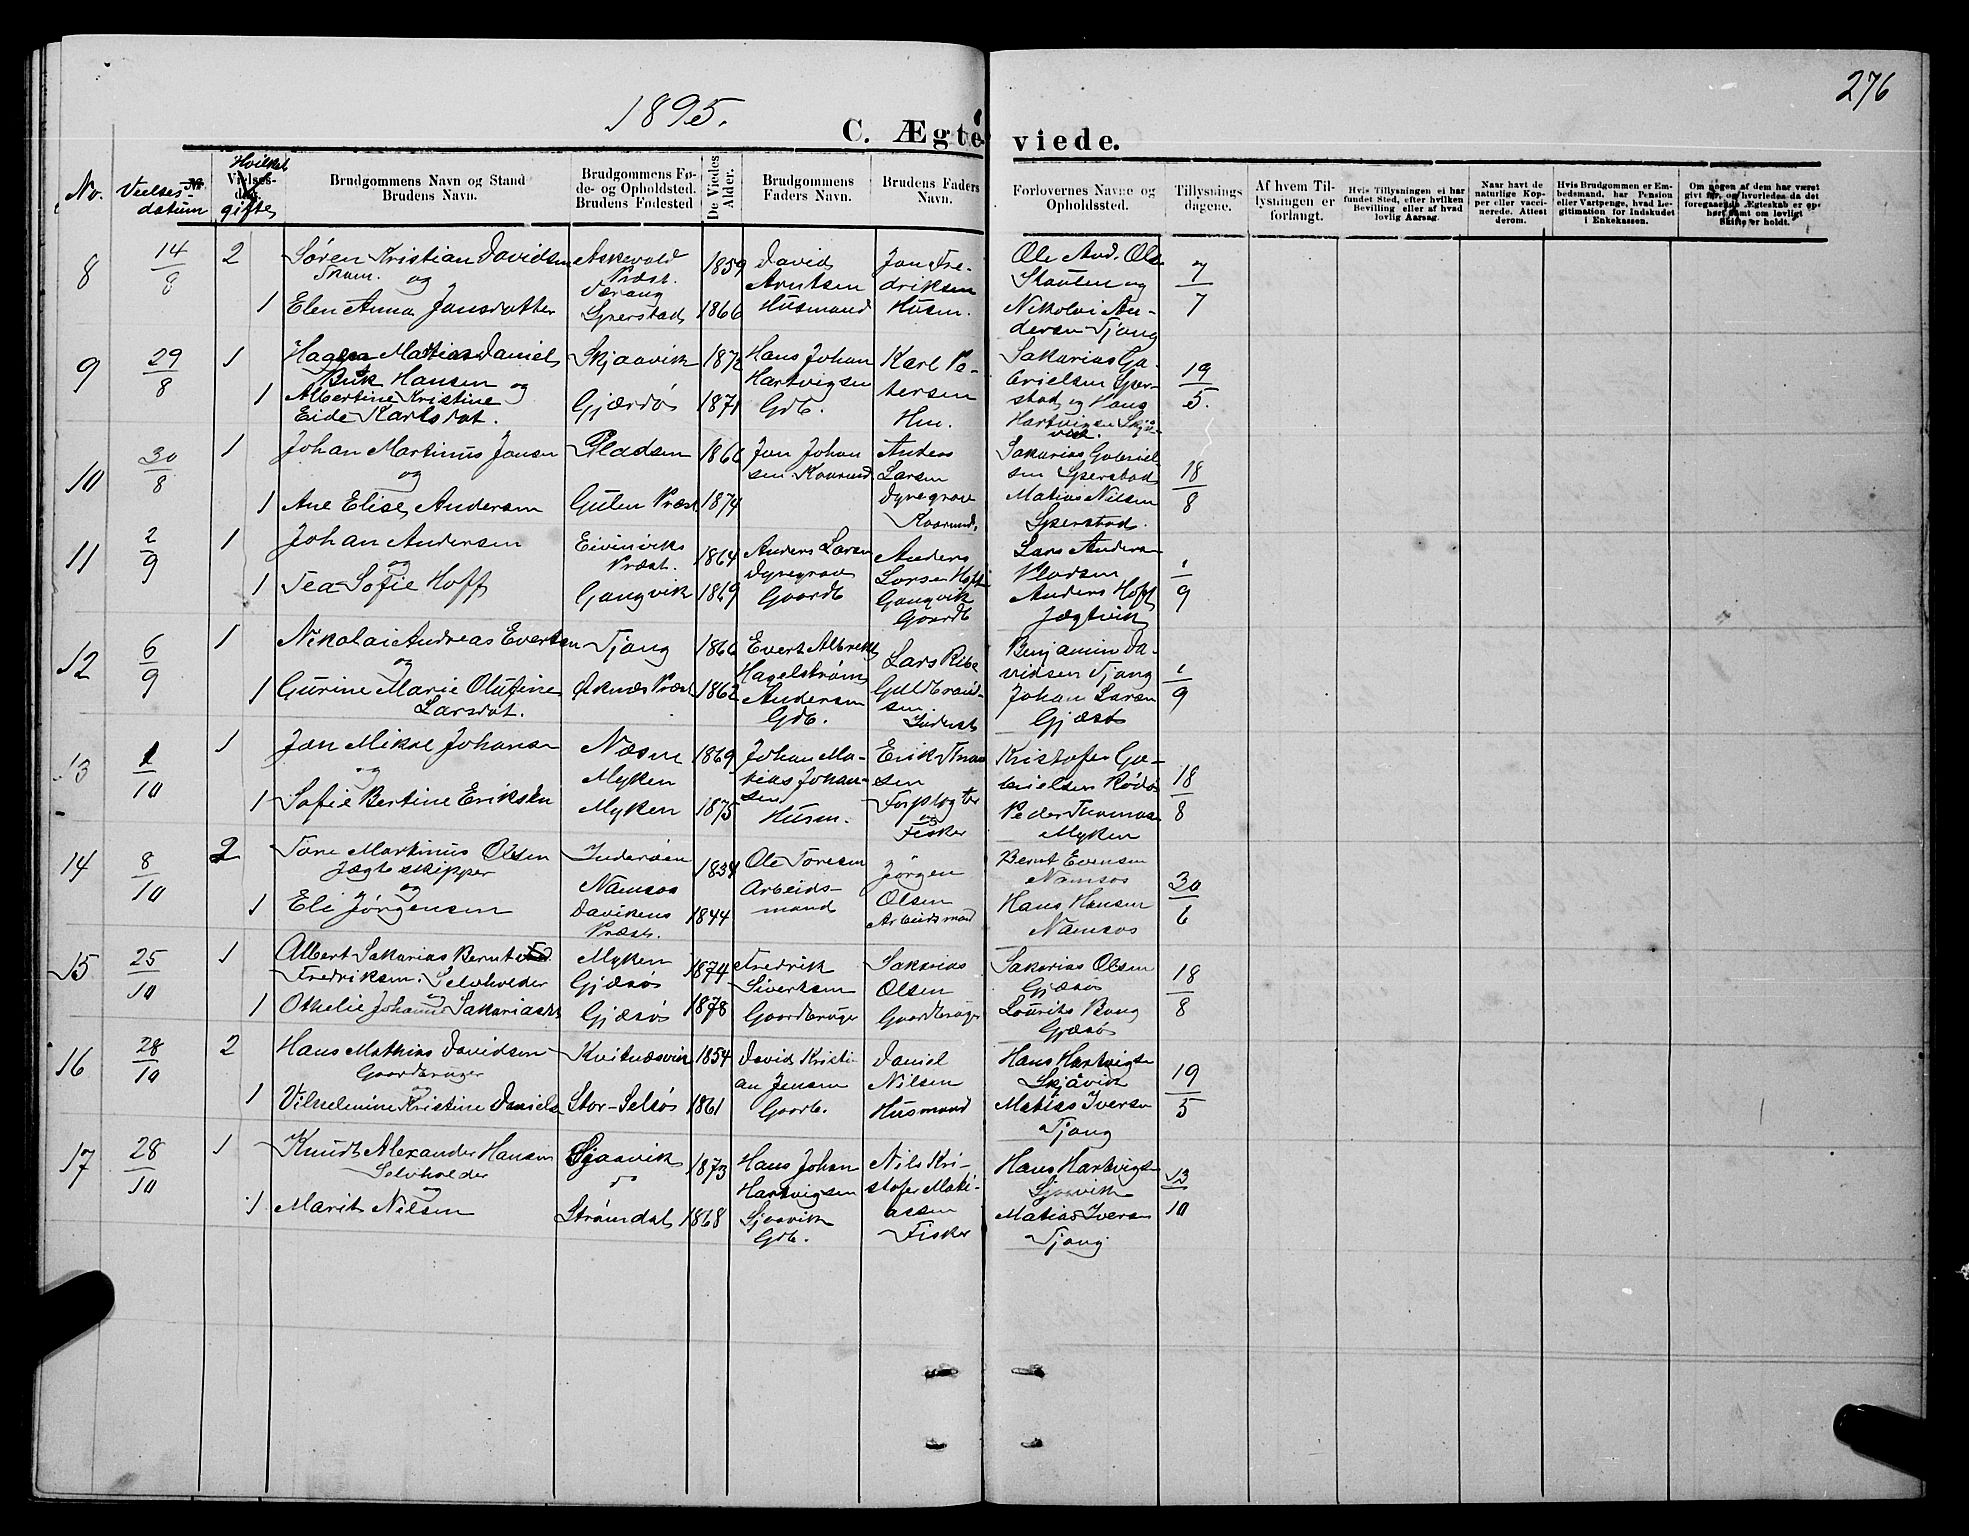 276
1895.
C. Ægteviede.
No.
Vielses-
datum
Hvilket
Vielses-
gifte
Brudgommens Navn og Stand
Brudens Navn.
Brudgommens Fø-
de- og Opholdsted.
Brudens Fødested
De Viedes
Alder.
Brudgommens
Faders Navn.
Brudens Faders
Navn.
Forlovernes Navne og
Opholdssted.
Tillysnings
dagene.
Af hvem Til-
lysningen er
forlangt.
Hvis Tillysningen ei har
fundet Sted, efter hvilken
Bevilling eller af hvad
lovlig Aarsag.
Naar havt de
naturlige Kop-
per eller vacci-
nerede. Attest
derom.
Hvis Brudgommen er Em-
bedsmand, har Pension
eller Vartpenge, hvad Le-
gitimation for Indskudet
i Enkekassen.
Om nogen af dem har været
gift før, og hvorledes da det
foregaaende Ægteskab er op-
hørt samt om lovligt
Skifte er holdt.
8
14/8
2
Søren Kristian Davidsen
og
1
Elen Anna Jonsdatter
Askevold
Præst.
Sperstad
1859
1866
David
Arntsen
Husmand
Jon Fre-
driksen
Husm.
Ole And. Ols
og
Nikolai An-
dersen Tjong
7/7
9
29/8
1
Hagen Matias Daniel
Buk Hansen og
1
Albertine Kristine
Eide Karlsdat.
Skjaavik
Gjærdø
1872
1871
Hans Johan
Hartvigsen
Gdb.
Karl Pe-
tersen
Hu.
Sakarias Ga-
brielsen Sper-
stad og Hans
Hartvigsen Skjå-
vik.
19/5.
10
30/8
1
Johan Martinus Jonsen
og
1
Ane Elise Andersen
Pladsen
Gulen Præst
1866
1874
Jon Johan
sen Kaarund
Anders
Larsen
Dyregrov
Kaarund.
Sakarias Gabriel-
sen Sperstad
Matias Nilsen
Sperstad.
18/8
11
2/9
1
Johan Andersen
og
1
Tea Sofie Hoff
Eivinviks
Præst.
Gangvik
1864
1869
Anders Larsen
Dyregrov
Gaardb
Anders
Larsen Hoff
Gangvik
Gaardb
Lars Anderse
Pladsen
Anders Hoff
Jægtvik
1/9
12
6/9
1
Nikolai Andreas Evertsen
og
1
Gurine Marie Olufine
Larsdat.
Tjong
Øxnæs Præst
1866
1862
Evert Albrekt
Hagelstrøm
Andersen
Gdb.
Lars Ribe
Guldbrand-
sen
Inderst
Benjamin Da-
vidsen Tjong
Johan Larsen
Gjæsø
1/9
13
1/10
1
Jon Mikal Johanse
og
1
Sofie Bertine Eriksen
Næsne
Myken
Myken
1869
1875
Johan Ma-
tias Johan-
sen
Husm.
Erik Thom
sen
Forpagter
og
Fisker
Kristofer Ga-
brielsen Rødø
Peder Thomas
Myken
18/8
14
8/10
2
Tore Martinus Olsen
Jægteskipper
og
1
Eli Jørgensen
Inderøen
Namsos
Davikens
Præst.
1834
1844
Ole Toresen
Arbeids-
mand
Jørgen
Olsen
Arbeidsmand
Bernt Evensen
Namsos
Hans Hansen
Namsos
30/6
15
25/10
1
Albert Sakarias Bernt
Fredriksen. Selvholder
og
1
Othelie Johanne Sakariasdt
Myken
Gjæsø
Gjæsø
1874
1878
Fredrik
Sivertsen
Gaardbruger
Sakarias
Olsen
Gaardbruger
Sakarias Olsen
Gjæsø
Lourits Bang
Gjæsø
18/8
16
28/10
2
Hans Mathias Davidsen
Gaardbruger
og
1
Vilhelmine Kristine Daniels
Kvitnæsvik
Stor-Selsø
1854
1861
David Kristi-
an Jensen
Gaardb.
Daniel
Nilsen
Husmand
Hans Hartvigse
Skjåvik
Matias Iverse
Tjong
19/5
17
28/10
1
Knudt Alexander Hansen
Selvholder
og
1
Marit Nilsen
Sjaavik
Strømdal
1873
1868
Hans Johan
Hartvigsen
Sjaavik
Gdb.
Nils Kri-
stofer Mati-
assen
Fisker
Hans Hartvigse
Sjaavik
Matias Iverse
Tjong
13/10